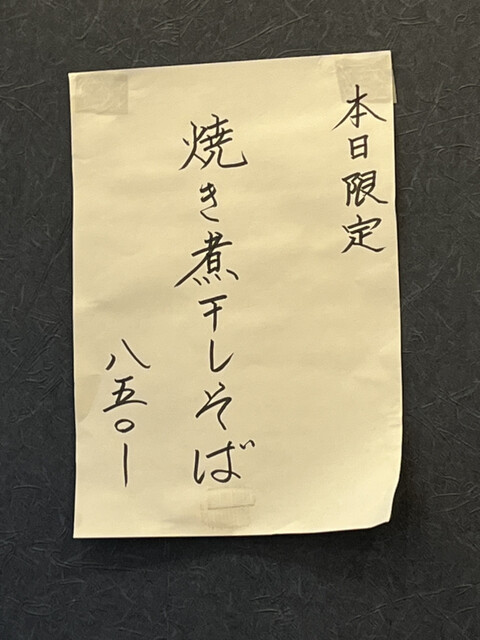 本日限定
焼き煮干しそば
八五〇ー